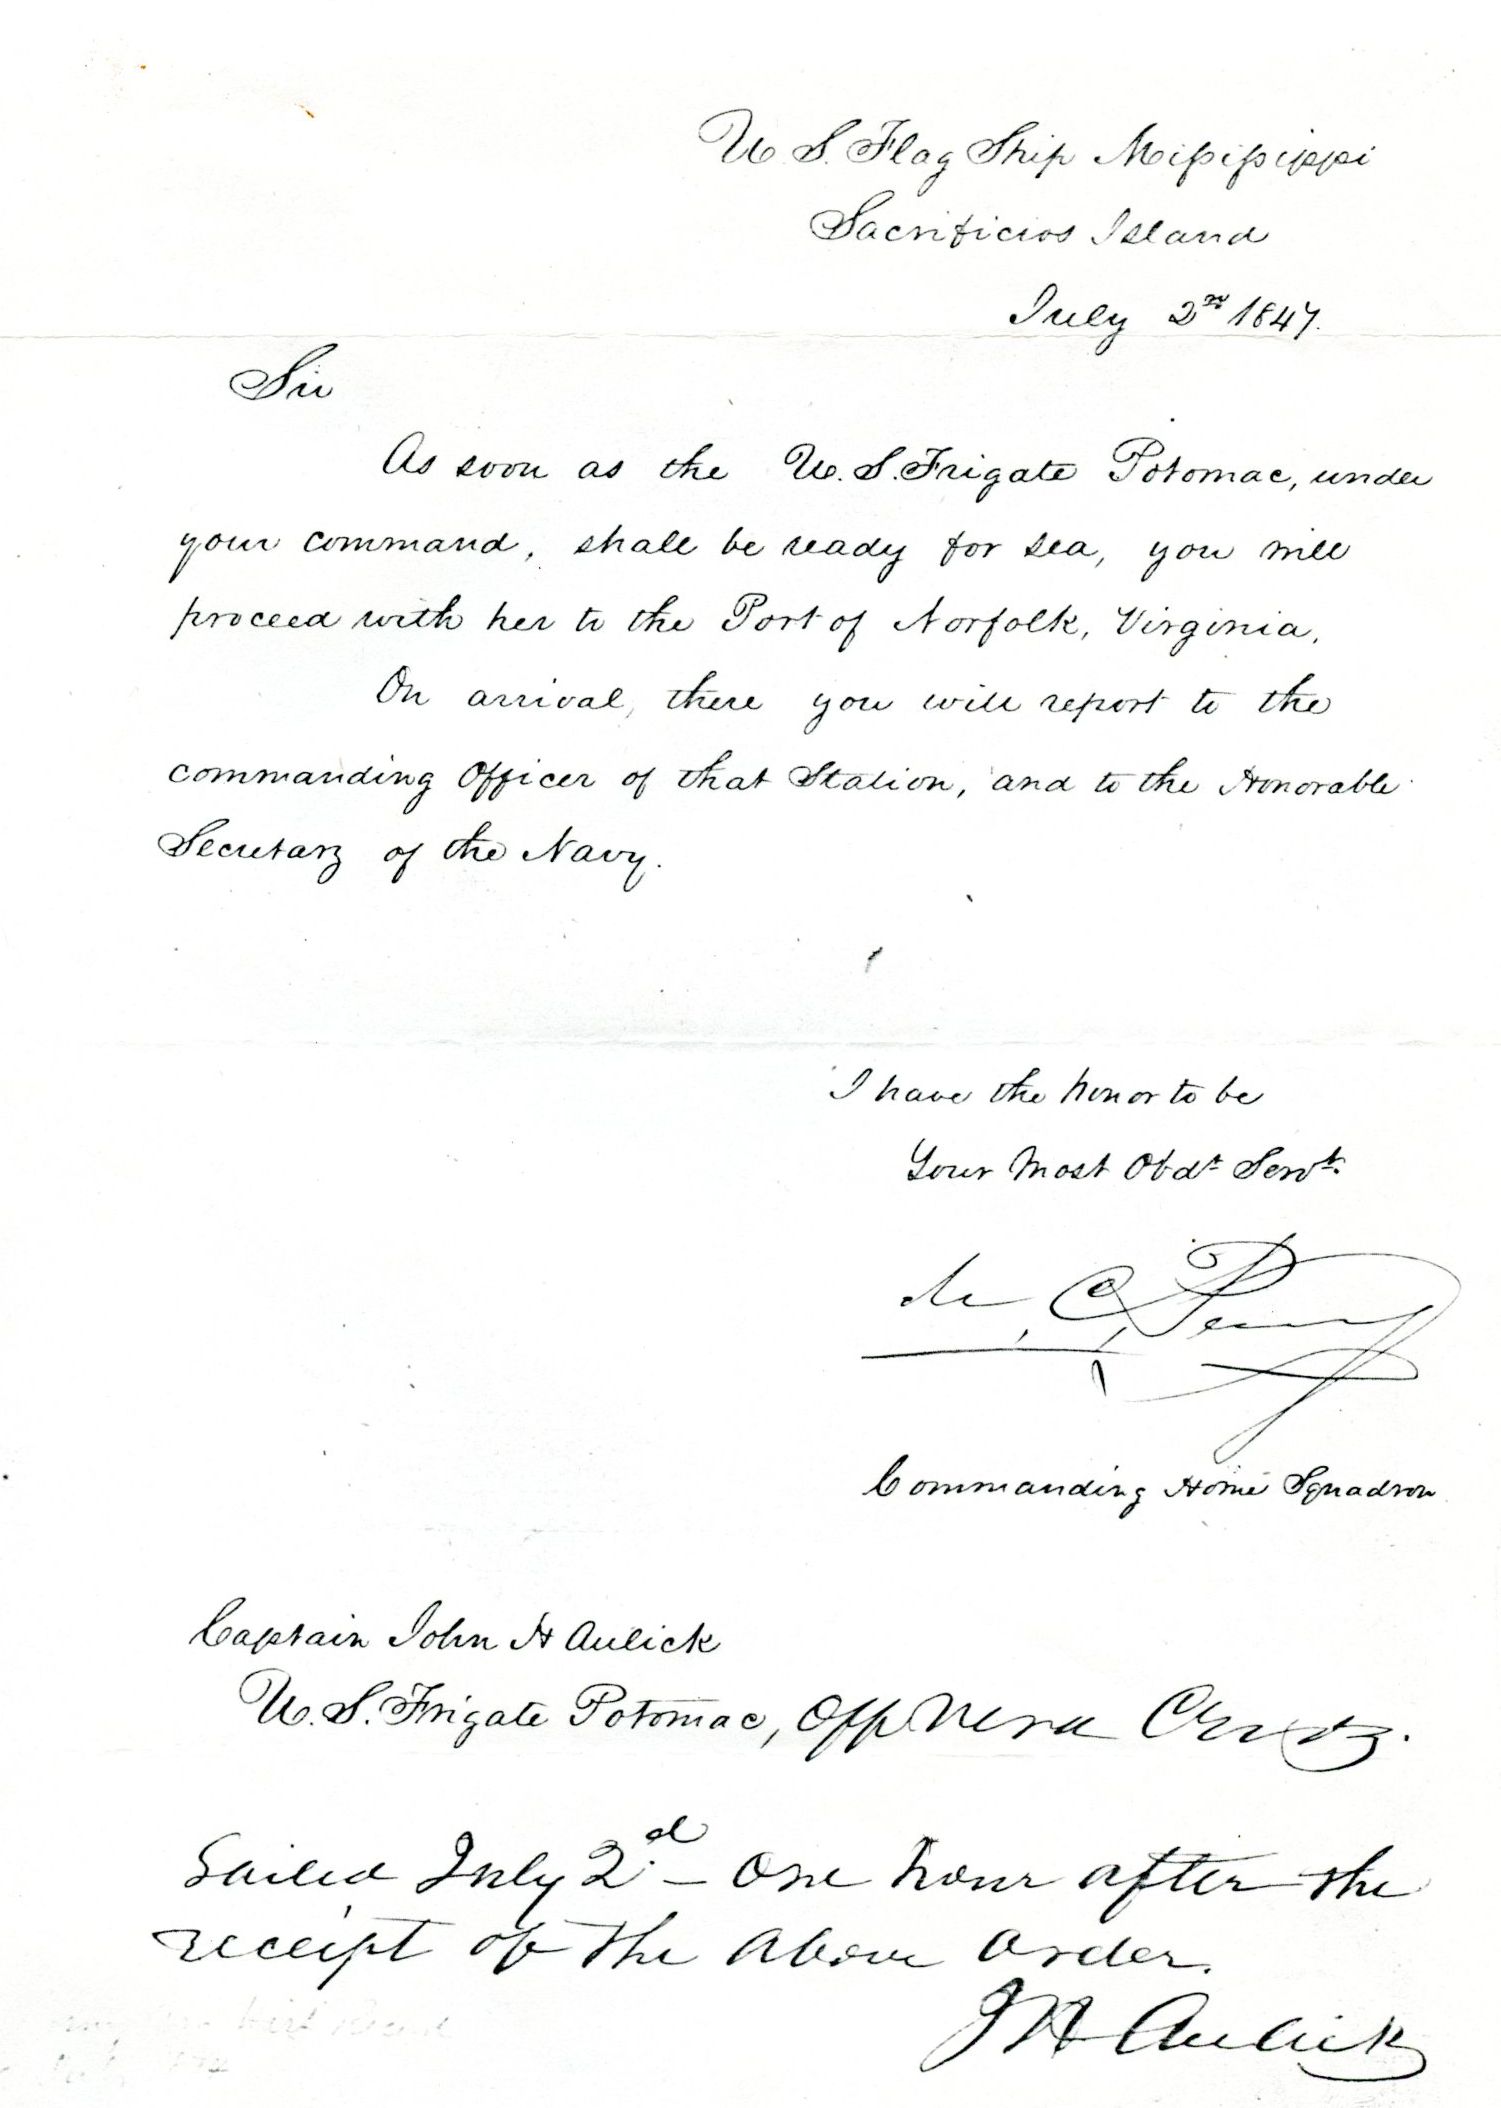 U. S. Flag Ship Mississippi
Sacrificios Island
July 2nd 1847.
Sir
As soon as the U. S. Frigate Potomac, under
your command, shall be ready for sea, you will
proceed with her to the Port of Norfolk, Virginia,
On arrival, there you will report to the
commanding Officer of that Station, and to the Honorable
Secretary of the Navy.
I have the honor to be
Your Most Obdt Servt.
M C Perry
Commanding Home Squadron
Captain John H Aulick
U. S. Frigate Potomac, Off Vera Cruz.
Sailed July 2d. – One hour after the
receipt of the above order.
J H Aulick